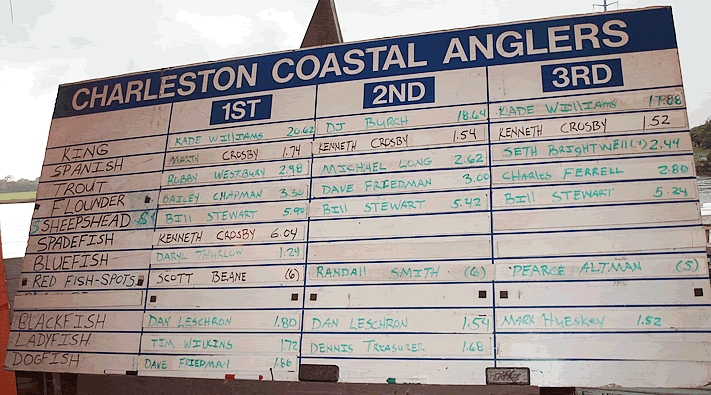 CHARLESTON COASTAL ANGLERS
1ST 2ND 3RD
KING KADE WILLIAMS 20.62 DJ BURCH 18.64 KADE WILLIAMS 17.88
SPANISH MARK CROSBY 1.74 KENNETH CROSBY 1.54 KENNETH CROSBY 1.52
TROUT BOBBY WESTBURY 2.98 MICHAEL LONG 2.62 SETH BRIGHTWELL 2.44
FLOUNDER DAILEY CHAPMAN 3.30 DAVE FRIEDMAN 3.00 CHARLES FERRELL 2.80
SHEEPSHEAD BILL STEWART 5.90 BILL STEWART 5.42 BILL STEWART 5.24
SPADEFISH KENNETH CROSBY 6.04
BLUEFISH DARYL THURLOW 1.24
RED FISH-SPOTS SCOTT BEANE (6) RANDALL SMITH (6) PEARCE ALTMAN (5)
BLACKFISH DAN LESCHRON 1.80 DAN LESCHRON 1.54 MARK HUESKEY 1.52
LADYFISH TIM WILKINS 1.72 DENNIS TREASURER 1.68
DOGFISH DAVE FRIEDMAN 1.86